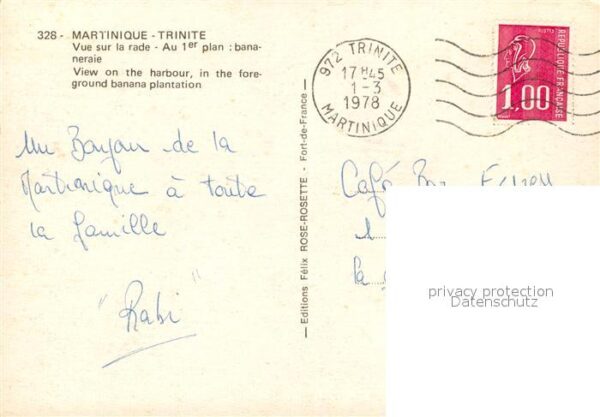 328 - MARTINIQUE - TRINITE
Vue sur la rade - Au 1er plan : bana-
neraie
View on the harbour, in the fore-
ground banana plantation
972 TRINITE
17 H45
1-3
1978
MARTINIQUE
POSTES
REPUBLIQUE FRANÇAISE
1,00
Un Bonjour de la
Martinique à toute
la famille
"Rabi"
— Editions Félix ROSE-ROSETTE - Fort-de-France —
Café Bar
la
privacy protection
Datenschutz